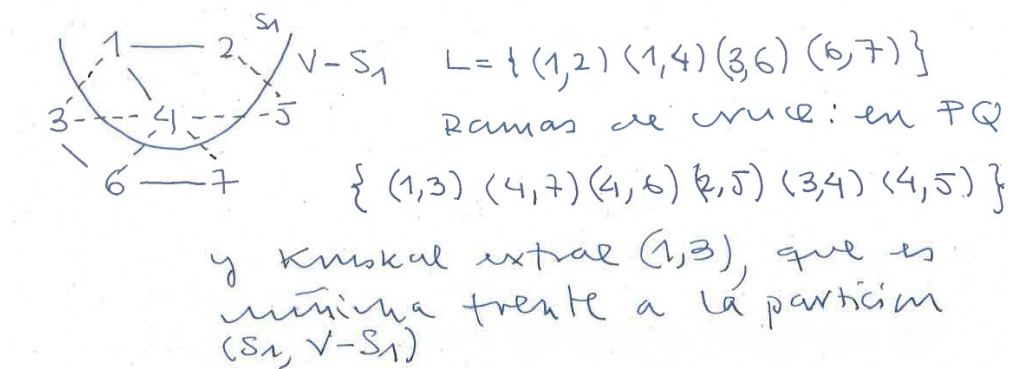 S1
1 2 V-S1 L={(1,2) (1,4) (3,6) (6,7)}
3 4 5 Ramas de cruce: en PQ
6 7 {(1,3) (4,7) (4,6) (2,5) (3,4) (4,5)}
y Kruskal extrae (1,3), que es
mínima frente a la partición
(S1, V-S1)